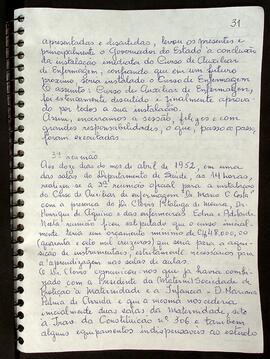 31
apresentadas e discutidas, levou os presentes e
principalmente o Governador do Estado a conclusão
da instalação imediata do Curso de Auxiliar
de Enfermagem, confiando que em um futuro
próximo seria instalado o Curso de Enfermagem.
O assunto: Curso de Auxiliar de Enfermagem,
foi exaustivamente discutido e finalmente aprova-
do por todos a sua instalação.
Assim, encerramos a sessão, felizes e com
grandes responsabilidades, o que, passo a passo,
foram executadas.
3ª reunião
Aos doze dias do mes de abril de 1952, em uma
das salas do Departamento de Saúde, as 14 horas,
realizou-se a 3ª reunião oficial para a instalação
do Curso de Auxiliar de enfermagem "Dr. Marcos C. Costa"
com a presença do Dr. Clovis de
Henrique de Aquino e das enfermeiras Edna e
Nesta reunião ficou estipulado que o curso inicial-
mente teria um orçamento mínimo de
(quarenta e oito mil cruzeiros) que seria para a aqui-
sição de instrumentais, estritamente necessários para
a aprendizagem nas salas de aulas.
O Dr. Clovis comunicou-nos que já havia combi-
nado com a Presidente da (Matern) Sociedade de
Proteção a Maternidade e a Infância - D. Mariana
Palma de Arruda e que a mesma nos cederia
inicialmente duas salas da Maternidade, sito
à Praça da Constituição nº 306 e também
alguns equipamentos indispensáveis ao estudo